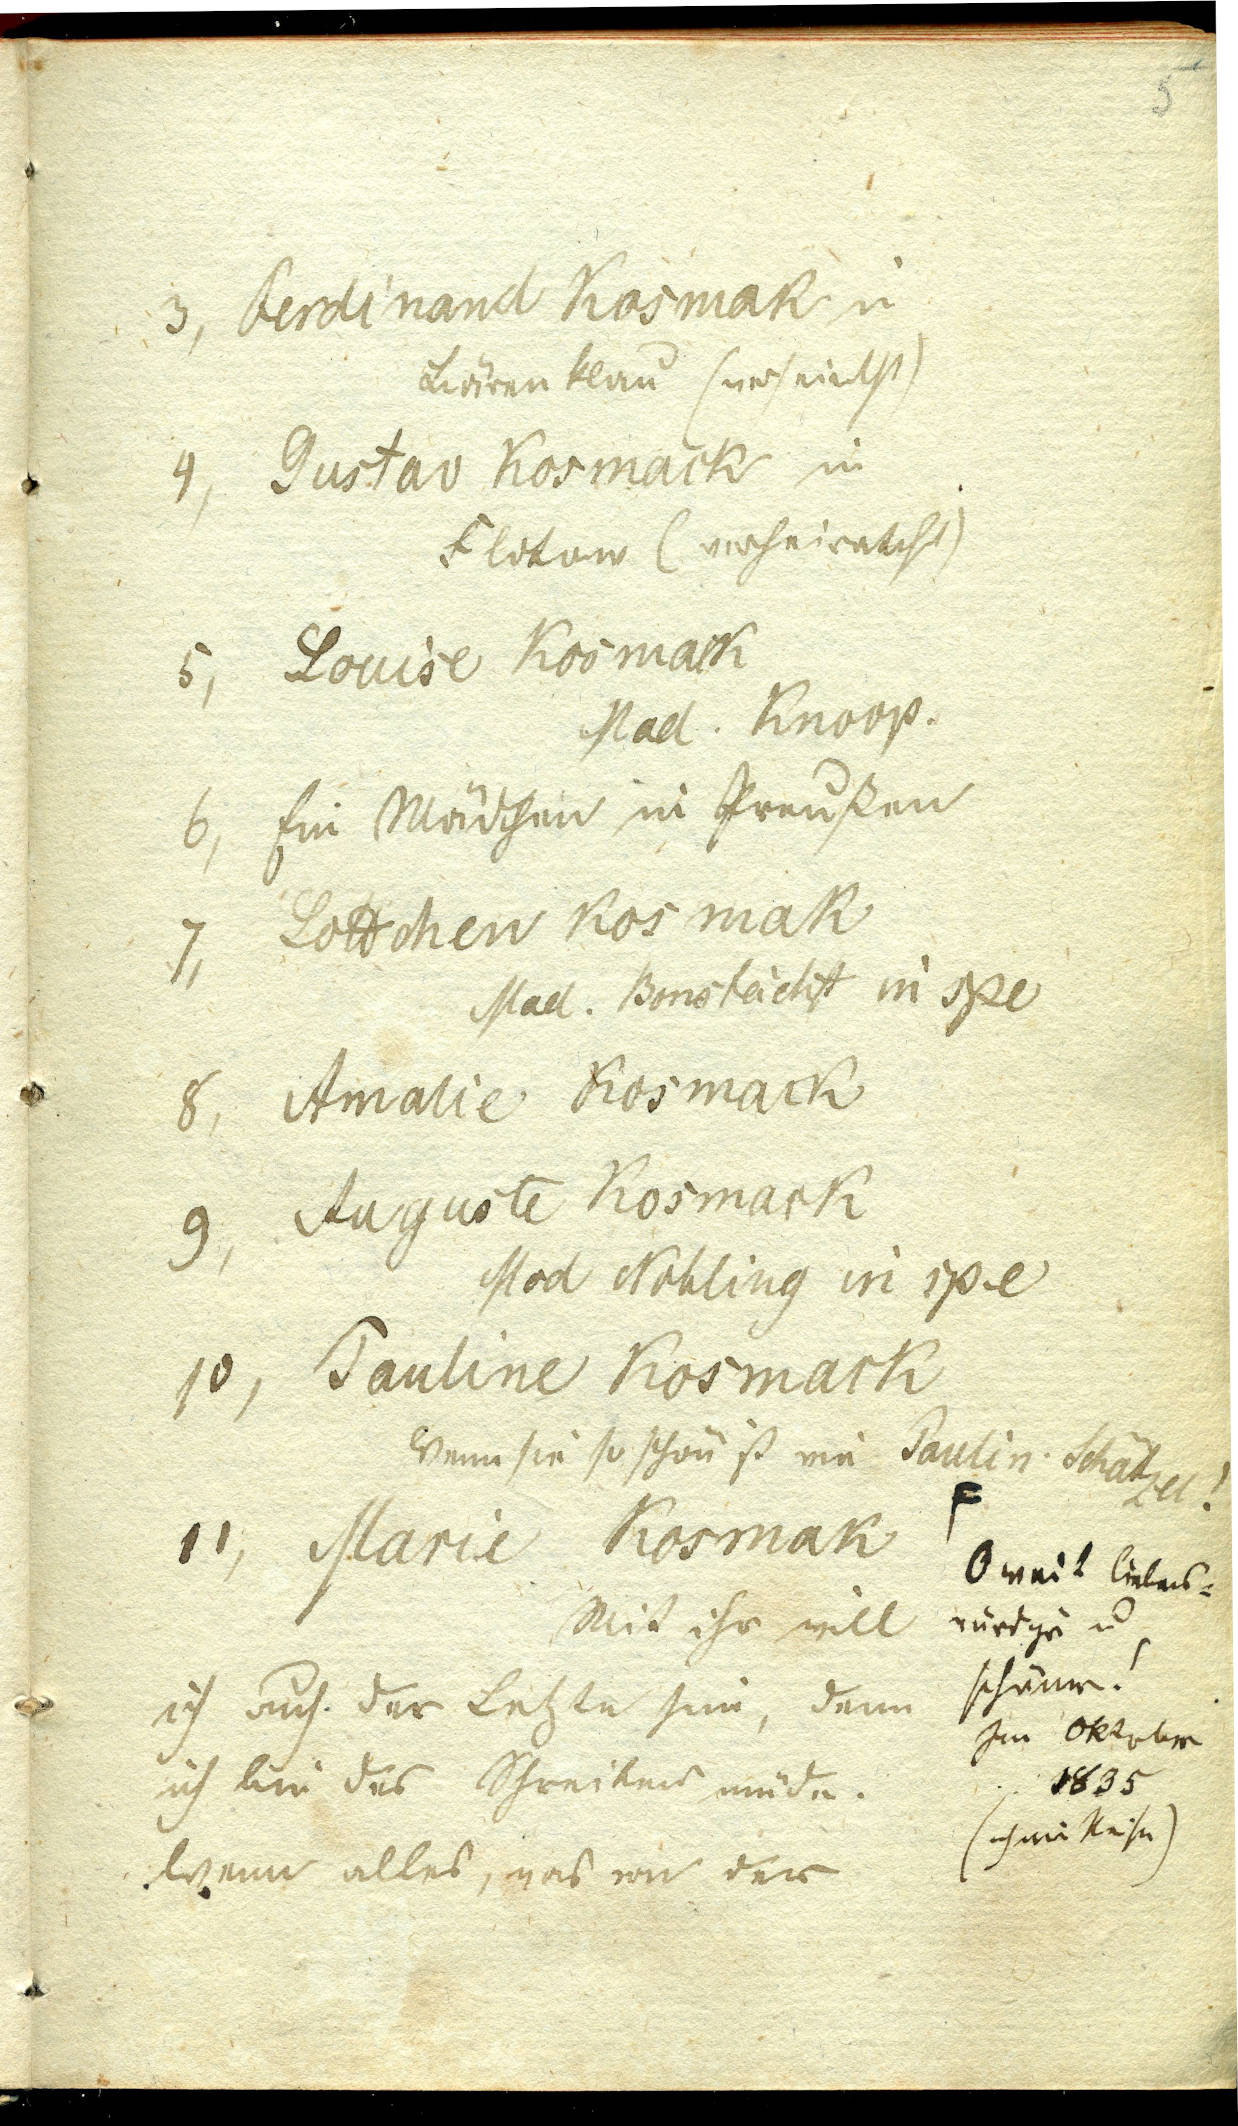 5
3, Ferdinand Kosmak in
Bärenklau (verheirathet)
4, Gustav Kosmack in
Flotow (verheirathet)
5, Louise Kosmack
Mad. Knoop.
6, Ein Mädchen in Preußen
7, Lottchen Kosmak
Mad. in spe
8, Amalie Kosmack
9, Auguste Kosmack
Mad Nohling in spe
10, Pauline Kosmack
Wenn sie so schön ist wie Paulin. Schätzel!
11, Marie Kosmak
Mit ihr will
ich auch der Letzte sein, denn
ich bin des Schreibens müde.
Wenn alles, was von der
F
O weit liebens=
würdger u
schöner!
Im Oktober
1835